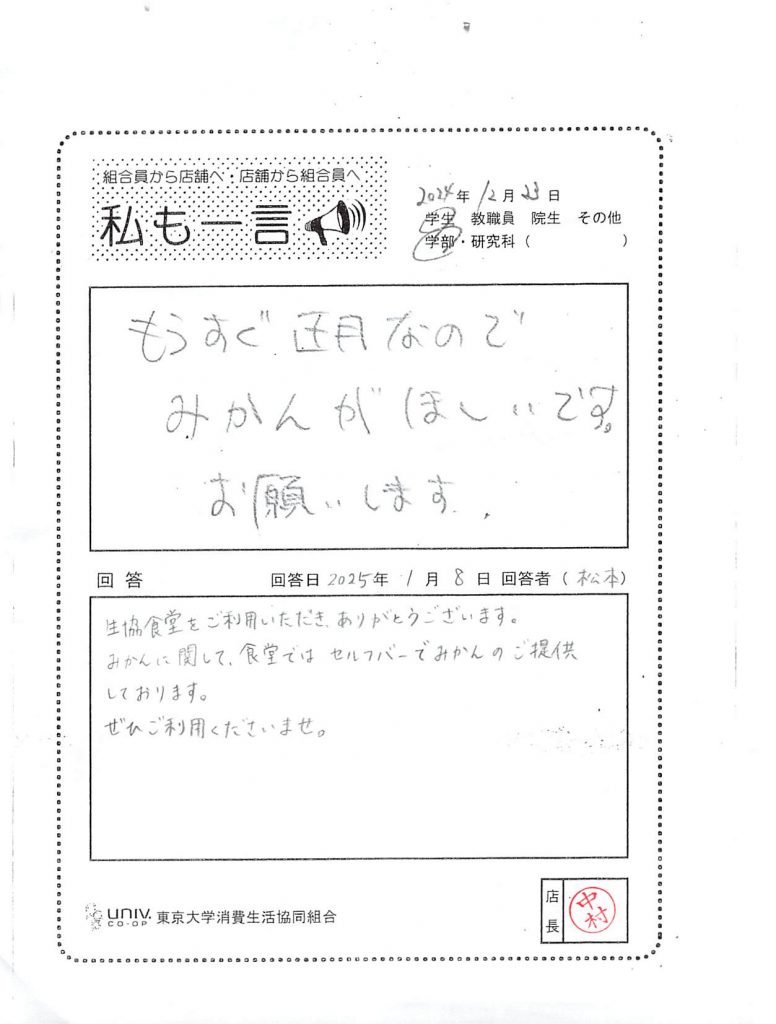 組合員から店舗へ・店舗から組合員へ
私も一言
2024年12月23日
学生 教職員 院生 その他
学部・研究科( )
もうすぐ正月なので
みかんがほしいです。
お願いします.
回答 回答日2025年1月8日 回答者(松本)
生協食堂をご利用いただき、ありがとうございます。
みかんに関して、食堂では セルフバーでみかんのご提供
しております。
ぜひご利用くださいませ。
UNIV. CO-OP 東京大学消費生活協同組合
店長
中村